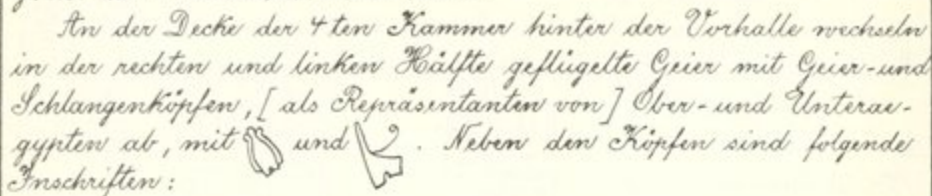 An der Decke der 4ten Kammer hinter der Vorhalle wechseln
in der rechten und linken Hälfte geflügelte Geier mit Geier-und
Schlangenköpfen, [als Repräsentanten von] Ober-und Unterae-
gypten ab, mit und . Neben den Köpfen sind folgende
Inschriften: